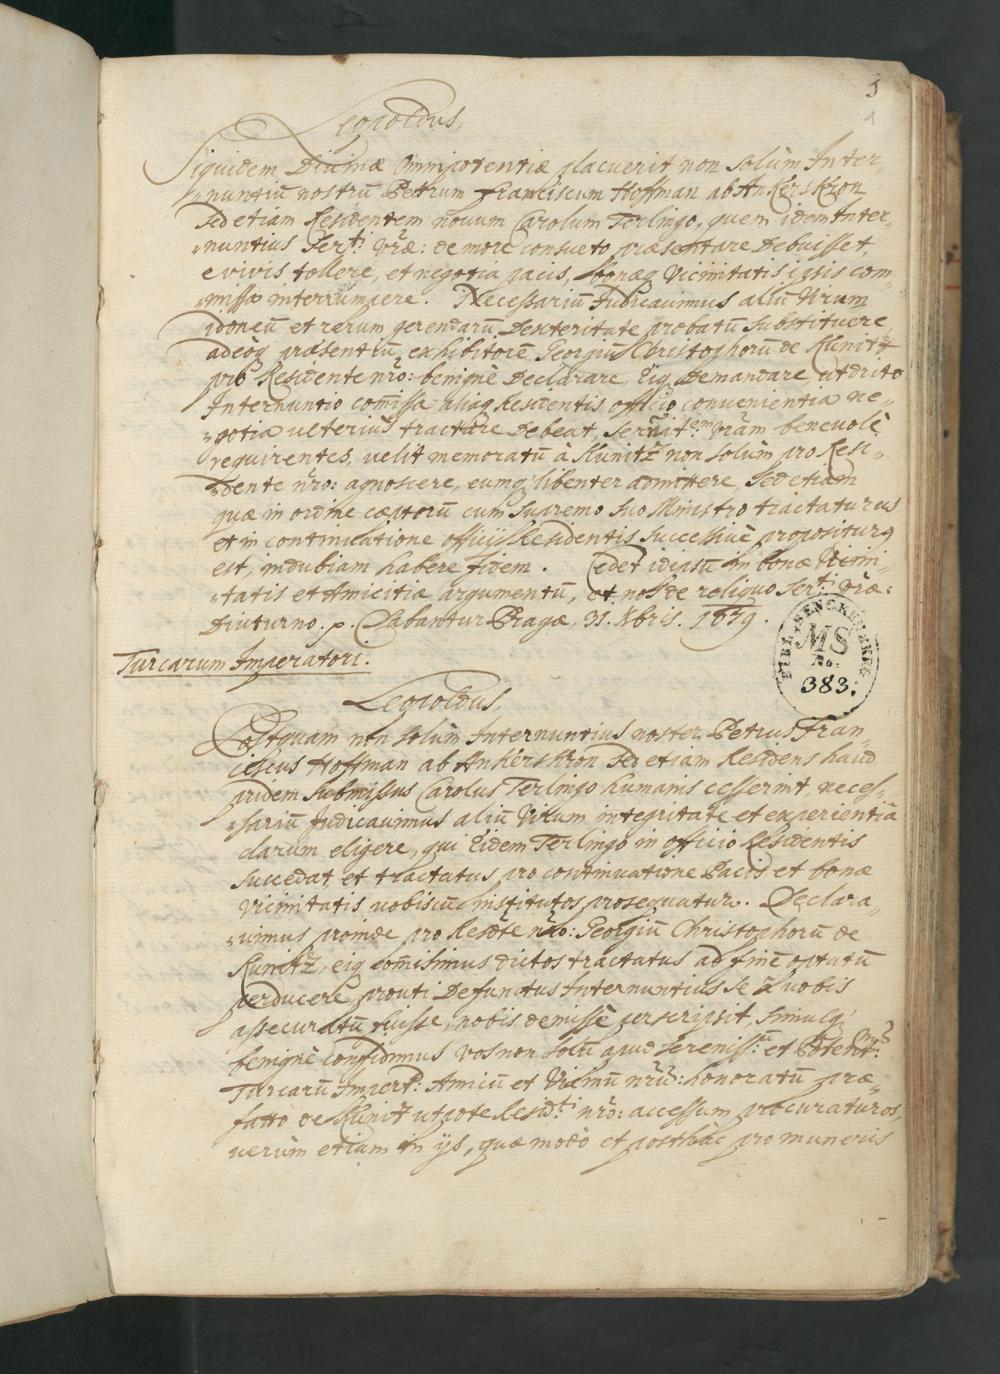 5
1
Leopoldus,
Siquidem Divinæ Omnipotentiæ placuerit non solùm Inter-
nuntiũ nostrũ Petrum Franciscum Hoffman ab Ankerskron
sed etiam Residentem novum Carolum Terlingo, quem idem Inter-
nuntius Ser.ti vræ: de more consueto præsentare debuisset,
e vivis tollere, et negotia pacis, bonæq Vicinitatis ipsis com-
missa interrumpere. Necessariũ Judicavimus aliũ Virum
idoneũ et rerum gerendarũ dexteritate probatũ substituere
adeoq præsentiũ exhibitorẽ Georgiũ Christophorũ de Kunitz
pro Residente nro: benignè Declarare, Eiq Demandare, ut dicto
Internuntio com̃issa, aliaq Residentis officio convenientia ne-
gotia ulterius tractare debeat, Serenit.em vram benevolè
requirentes, velit memoratũ à Kunitz non solùm pro Resi-
dente nro: agnoscere, eumq libenter admittere, sed etiam
quæ in ordine cæptorũ cum Supremo suo Ministro tractaturus
et in continuatione officii Residentis successivè propositurq
est, indubiam habere fidem. Cedet id ipsũ in bonæ Vicini-
tatis et Amicitiæ argumentũ, et nos de reliquo Ser.ti vræ:
Diuturno. p. Dabantur Pragæ, 31. Xbris. 1679.
BIBL. SENCKENBERG
MS
No.
383.
Turcarum Imperatori.
Leopoldus,
Postquam non solùm Internuntius noster Petrus Fran-
ciscus Hoffman ab Ankerskron sed etiam Residens haud
pridem submissus Carolus Terlingo humanis cesserint, neces-
sariũ Judicavimus aliũ Virum integritate et experientiâ
clarum eligere, qui Eidem Terlingo in officio Residentis
succedat, et tractatus pro continuatione Pacis et bonæ
vicinitatis vobiscũ institutos prosequatur. Declara-
vimus proinde pro Resdte nro: Georgiũ Christophorũ de
Kunitz, eiq com̃isimus dictos tractatus ad finẽ optatũ
perducere, prouti Defunctus Internuntius se à vobis
assecuratũ fuisse, nobis demissè perscripsit, simulq
benignè confidimus vos non solũ apud Sereniss.ũ et Potent.m
Turcarũ Imper: Amicũ et Vicinũ nrũ: honoratũ præ-
fatto de Kunitz utpote Resid.ti nro: accessum procuraturos,
verùm etiam in ijs, quæ modò et posthàc pro muneris